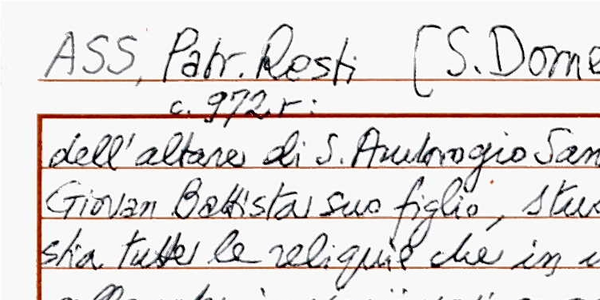 ASS, Patr. Resti [S. Dome
c. 972r:
dell'altare di S. Ambrogio San
Giovan Battista suo figlio, stu
stia tutte le reliquie che in